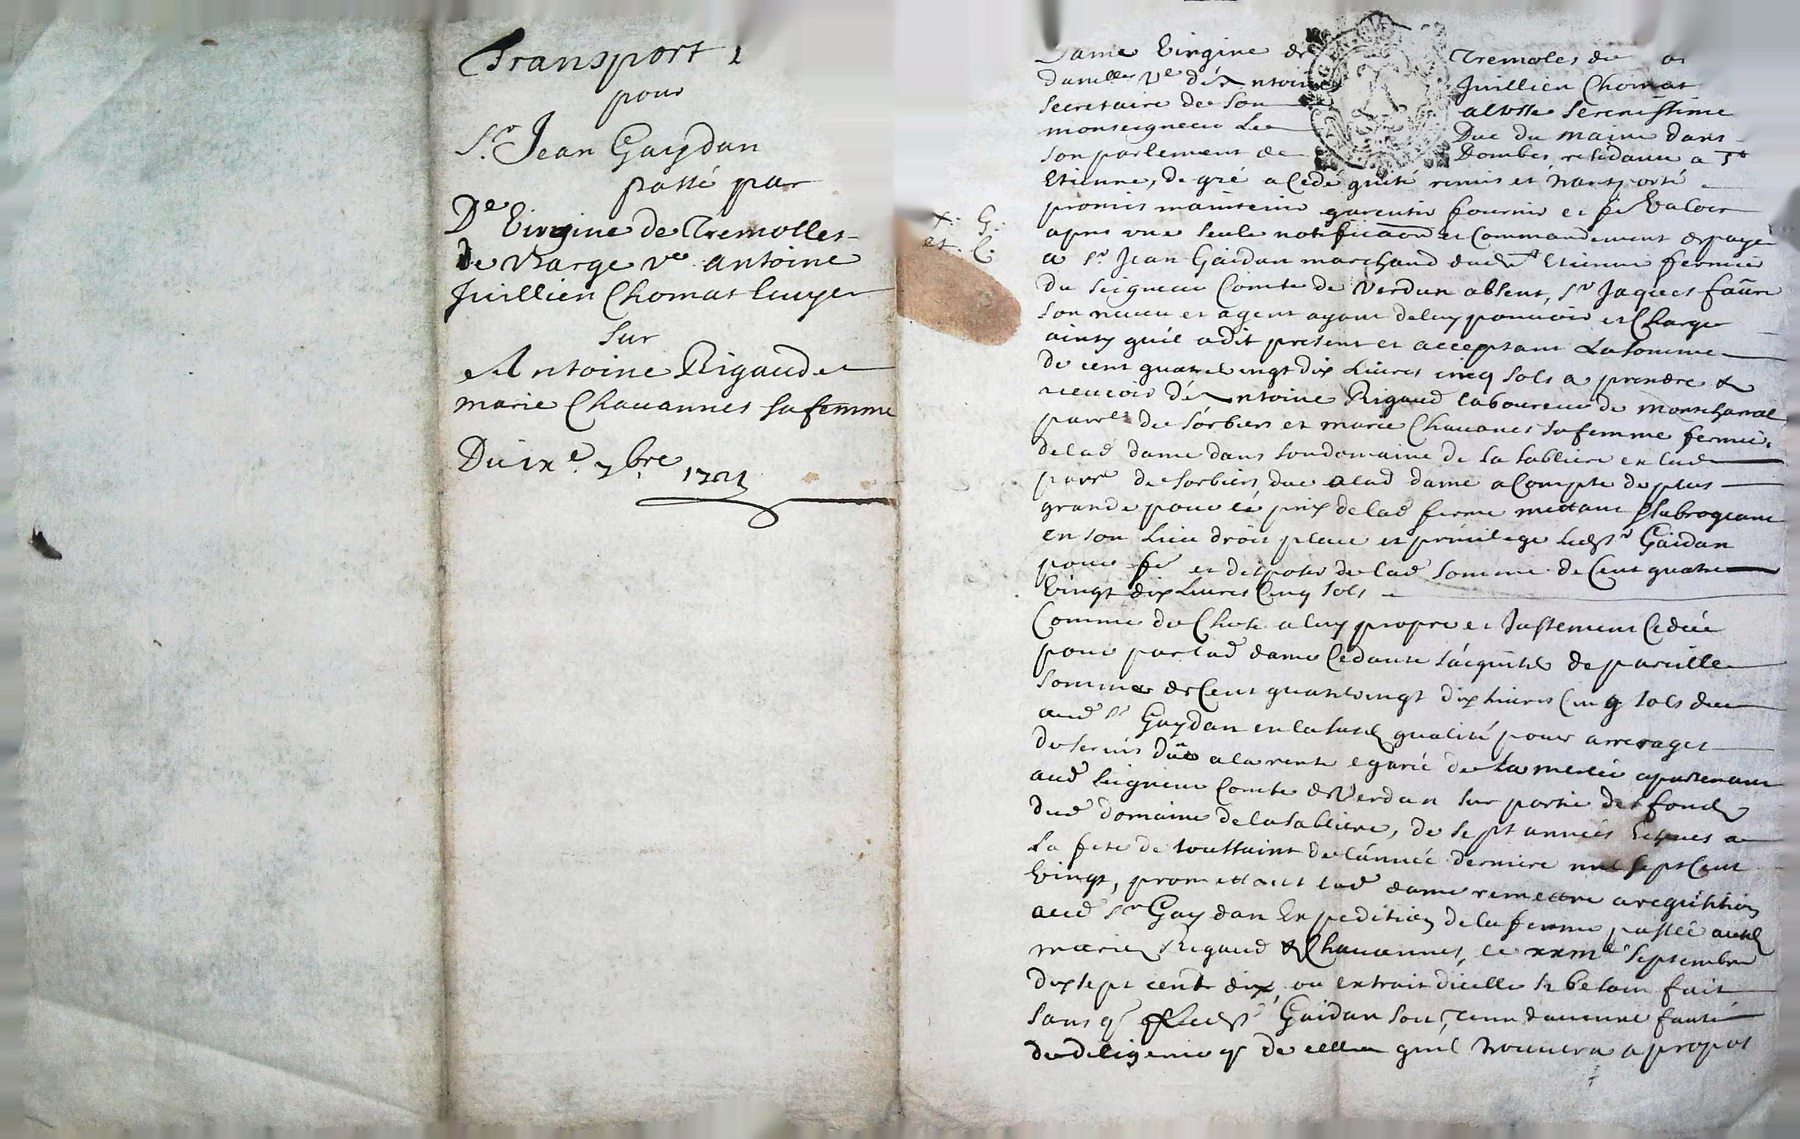 Transport
pour
Sr. Jean Gaydan
passé par
De Virgine de Tremolles
de Barge ve antoine
Juillien Chomat Escuyer
sur
Antoine Rigaud et
marie Chauannes sa femme
Du ixe. 7bre. 1721
Dame Virgine de Tremoles de
damlles ve de Sr Antoine Juillien Chomat
secretaire de son altesse serenissime
monseigneur Le Duc du maine dans
son parlement de Dombes residante a St
Etienne, de gré a Cede quité remis et transporté
promis maintenir garentir fournir et fe valoir
apres une seule notification et Commandement de payer
+. G.
et. C.
a Sr. Jean Gaidan marchand dud St Etienne fermier
du seigneur Comte de Verdun absent, Sr Jaques faure
son neueu et agent ayant de luy pouuoir et Charge
ainsy quil a dit present et acceptant La somme
de cent quatreuingt dix Liures cinq sols a prendre &
receuoir d'Antoine Rigaud laboureur de
parre de Sorbiers et marie Chauanes sa femme fermiers
de lad dame dans son domaine de la sabliere en lad
parre de Sorbiers due a lad dame a Compte de plus
grande pour le prix de lad ferme mettant subrogeant
en son Lieu droit place et priuilege led Sr Gaidan
pour se et disposer de lad somme de Cent quatre
vingt dix Liures Cinq sols
Comme de Chose a luy propre et Justement Cedée
pour par lad dame Cedante s'acquiter de pareille
somme de Cent quatreuingt dix liures Cinq sols due
aud Sr Gaydan en la susd qualité pour arrerages
de seruis dûs a la rente de La appartenant
aud seigneur Comte de Verdun sur partie des fonds
dud domaine de la sabliere, de sept années a
La fete de toussaint de l'année derniere mil sept Cent
vingt, promettant lad dame remettre a requisition
aud Sr Gaydan Expedition de la ferme passée ausd
mariés Rigaud & Chauannes, le septembre
dix sept cents dix, ou extrait d'icelle si besoin fait
sans q led Sr Gaidan soit tenu d'aucune faute
de diligence q de celles quil trouuera a propos